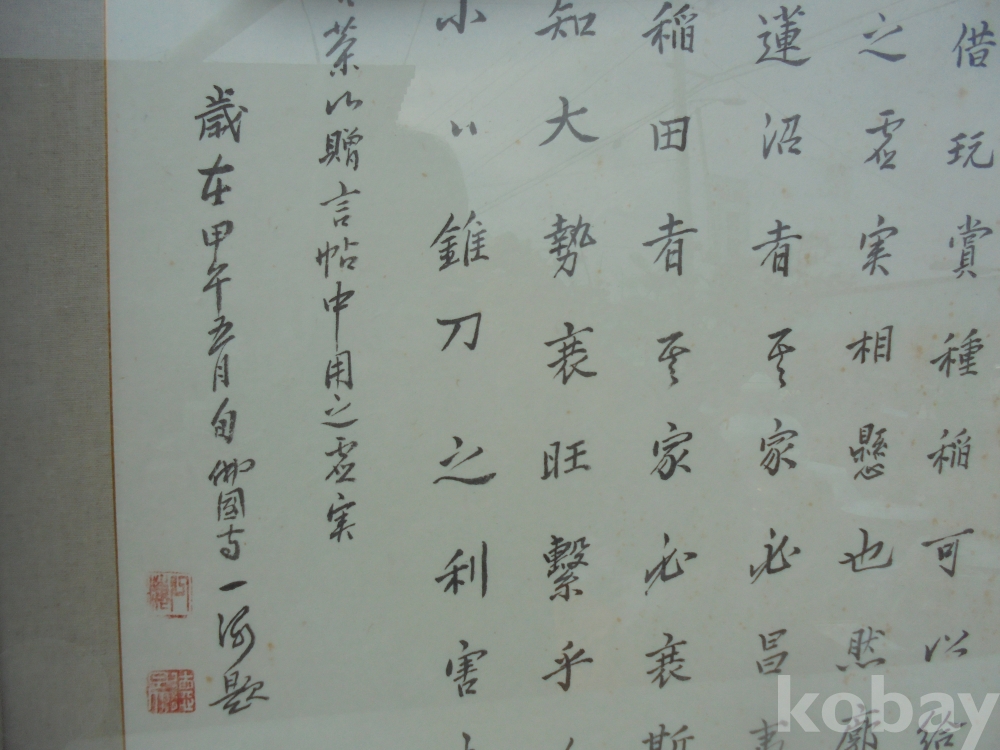 借玩賞種稲可以給
之虚実相懸也然廠
蓮沼者其家必昌
稲田者其家必衰斯
知大勢衰旺繫乎
小小錐刀之利害
荣以贈言帖中用之虚実
歳在甲午五月自佛國寺一海題
kobay